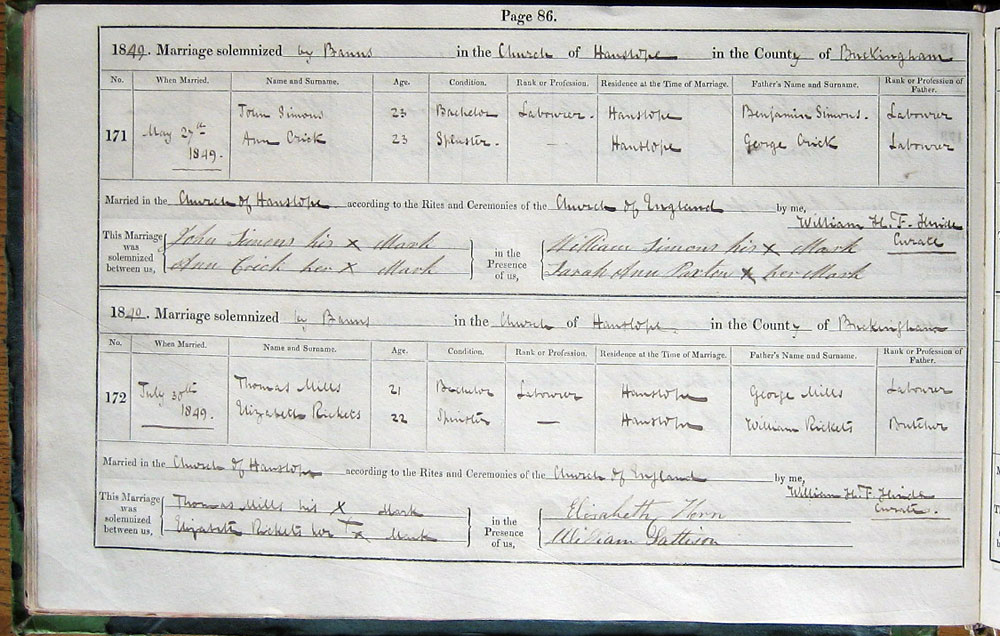 Page 86.
1849. Marriage solemnized by Banns in the Church of Hanslope in the County of Buckingham
No. When Married. Name and Surname. Age. Condition. Rank or Profession. Residence at the Time of Marriage. Father's Name and Surname. Rank or Profession of Father.
171 May 27th 1849. John Simons 23 Bachelor Labourer. Hanslope Benjamin Simons. Labourer
Ann Crick 23 Spinster. — Hanslope George Crick Labourer
Married in the Church of Hanslope according to the Rites and Ceremonies of the Church of England by me,
William H. F. Hinde
Curate
This Marriage was solemnized between us, John Simons his X Mark in the Presence of us, William Simons his X Mark
Ann Crick her X Mark Sarah Ann Paxton X her Mark
1849. Marriage solemnized by Banns in the Church of Hanslope in the County of Buckingham
No. When Married. Name and Surname. Age. Condition. Rank or Profession. Residence at the Time of Marriage. Father's Name and Surname. Rank or Profession of Father.
172 July 30th 1849. Thomas Mills 21 Bachelor Labourer Hanslope George Mills Labourer
Elizabeth Rickets 22 Spinster — Hanslope William Rickets Butcher
Married in the Church of Hanslope according to the Rites and Ceremonies of the Church of England by me,
William H. F. Hinde
Curate.
This Marriage was solemnized between us, Thomas Mills his X Mark in the Presence of us, Elisabeth Horn
Elizabeth Rickets her X Mark William